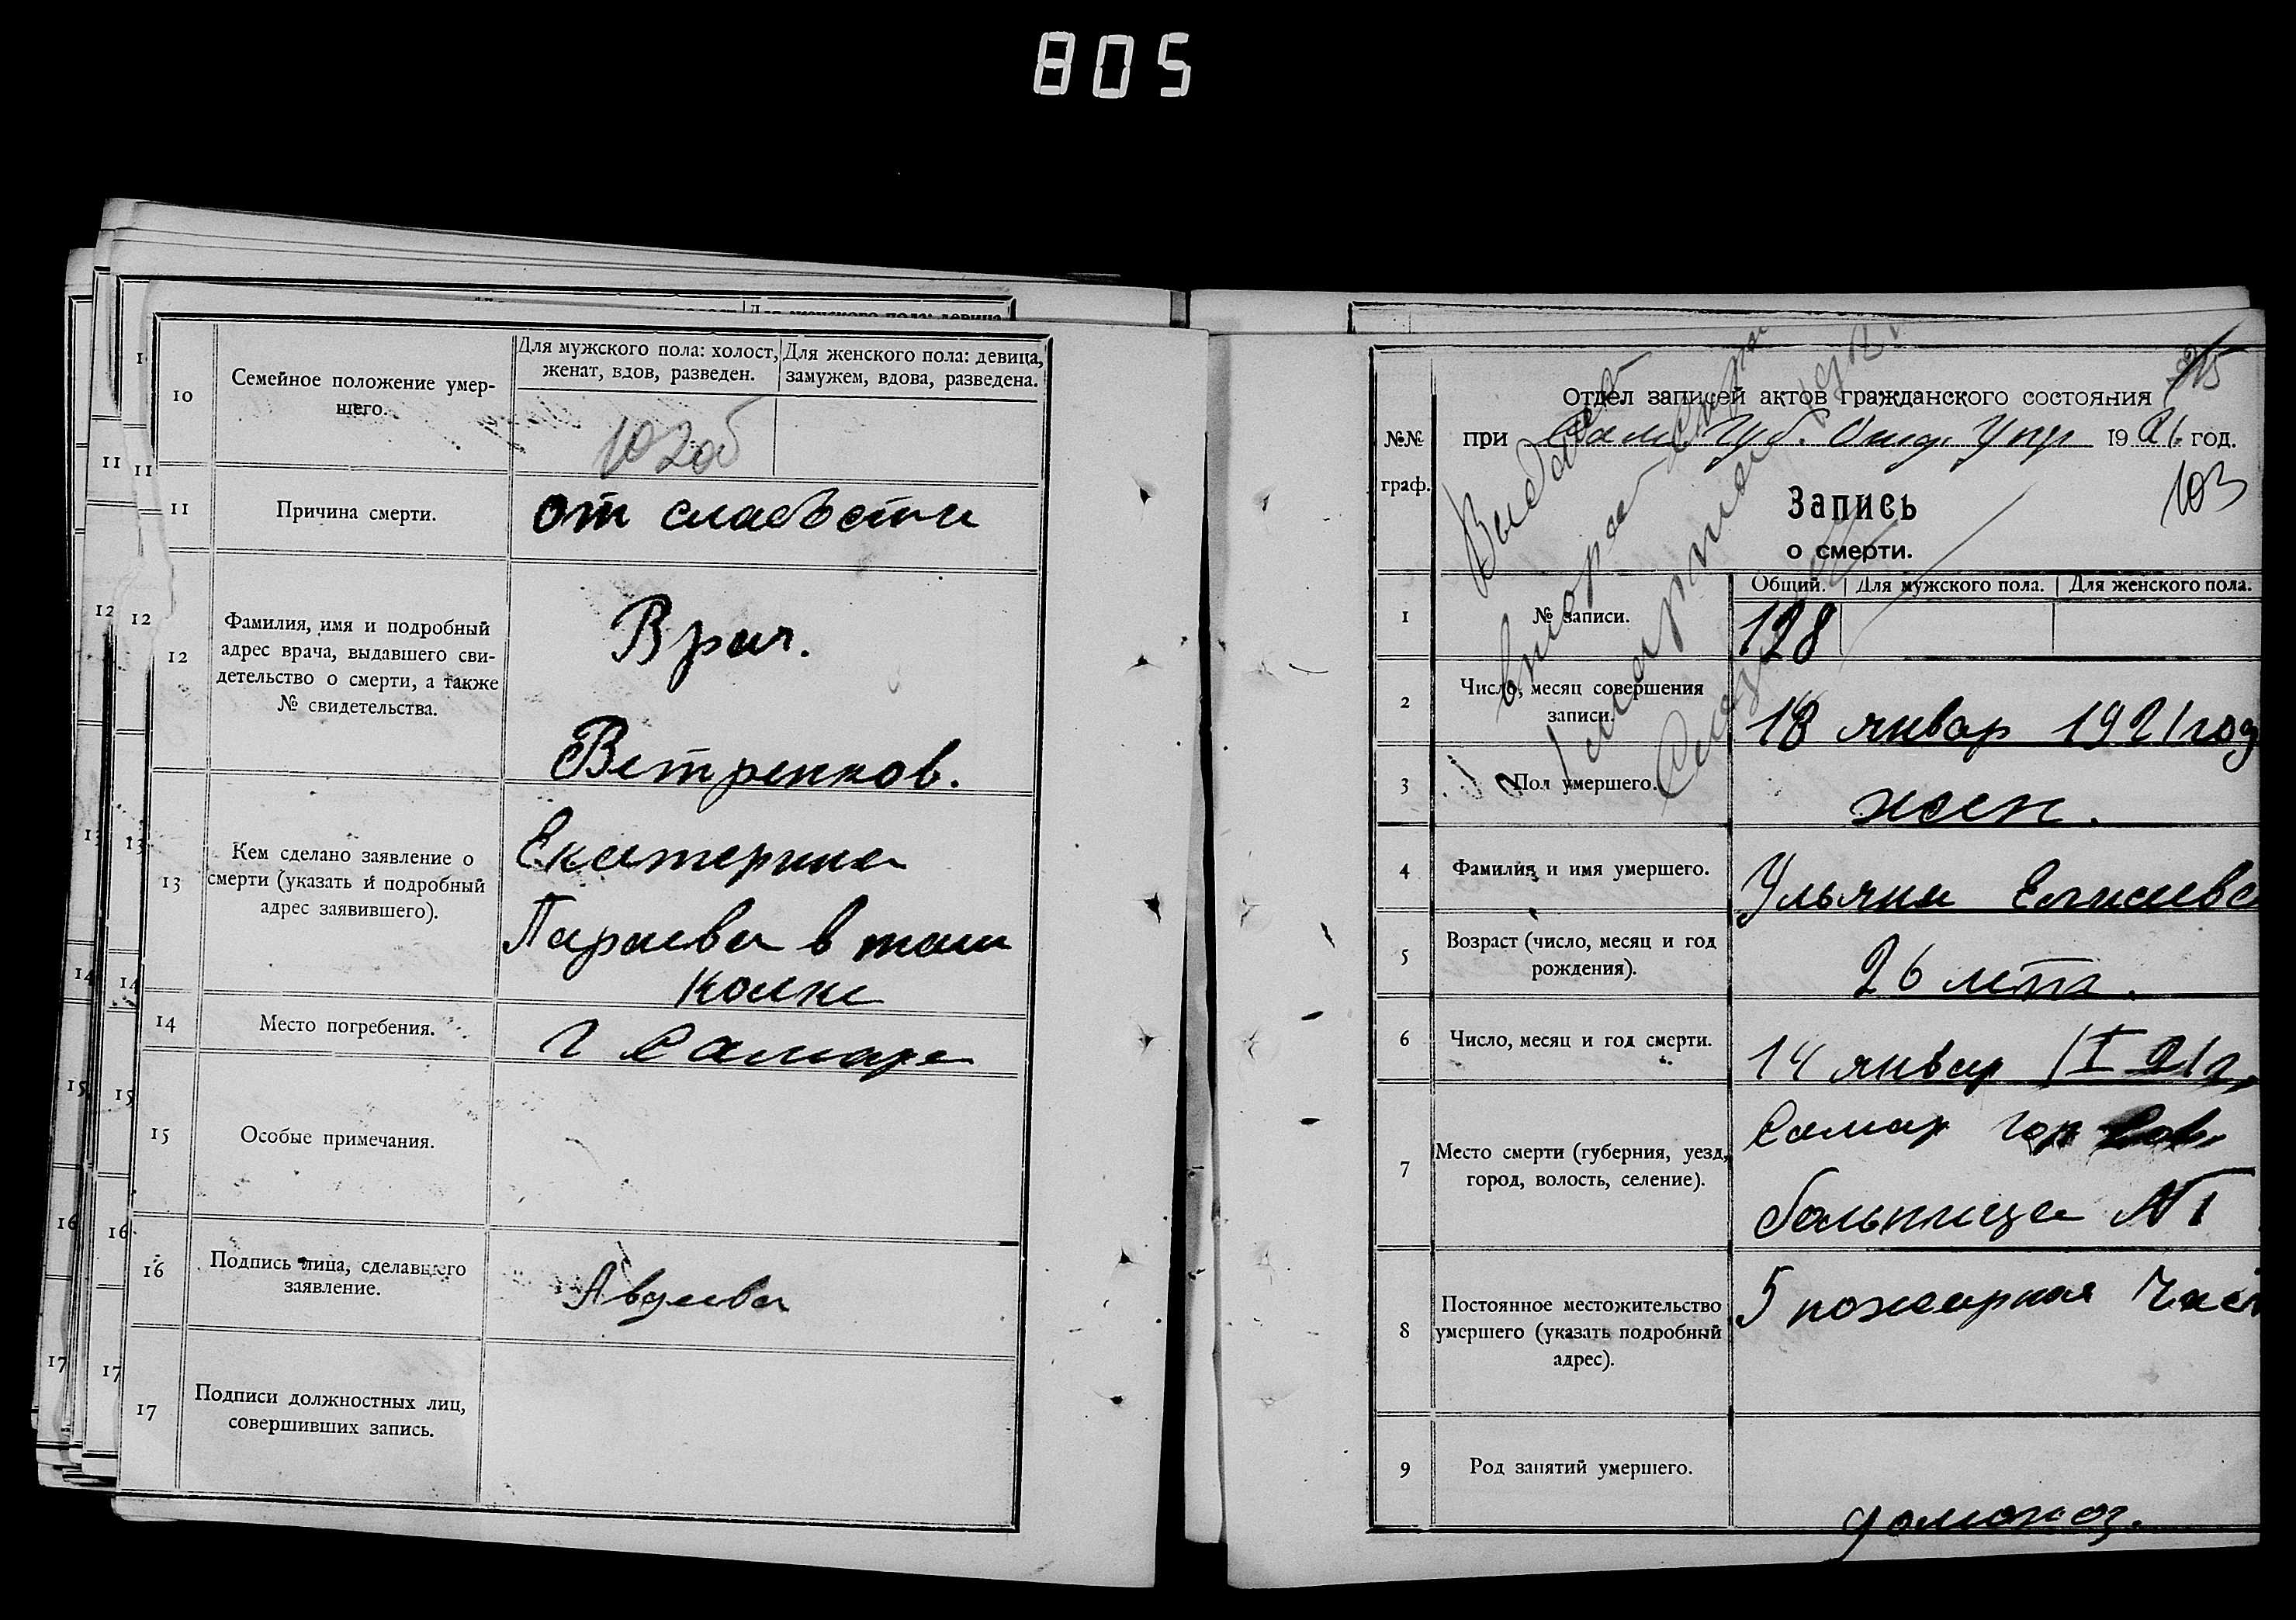 805
10
Семейное положение умер-
шего.
Для мужского пола: холост,
женат, вдов, разведен.
Для женского пола: девица,
замужем, вдова, разведена.
102об
11
Причина смерти.
от слабости
12
Фамилия, имя и подробный
адрес врача, выдавшего сви-
детельство о смерти, а также
№ свидетельства.
Врач.
13
Кем сделано заявление о
смерти (указать и подробный
адрес заявившего).
Екатерина
в том
14
Место погребения.
г Самаре
15
Особые примечания.
16
Подпись лица, сделавшего
заявление.
Авдеева
17
Подписи должностных лиц,
совершивших запись.
№№
граф.
Отдел записей актов гражданского состояния
при Сам. Губ. Отд. Упр 1921 год.
103
Запись
о смерти.
Общий. Для мужского пола. Для женского пола.
1
№ записи.
128
2
Число, месяц совершения
записи.
18 январ 1921 год
3
Пол умершего.
жен.
4
Фамилия и имя умершего.
Ульяна Елисеева
5
Возраст (число, месяц и год
рождения).
26 лет.
6
Число, месяц и год смерти.
14 январ /I 21 г.
7
Место смерти (губерния, уезд,
город, волость, селение).
Самар гор
больница №1
8
Постоянное местожительство
умершего (указать подробный
адрес).
5 пожарная част
9
Род занятий умершего.
домохоз.